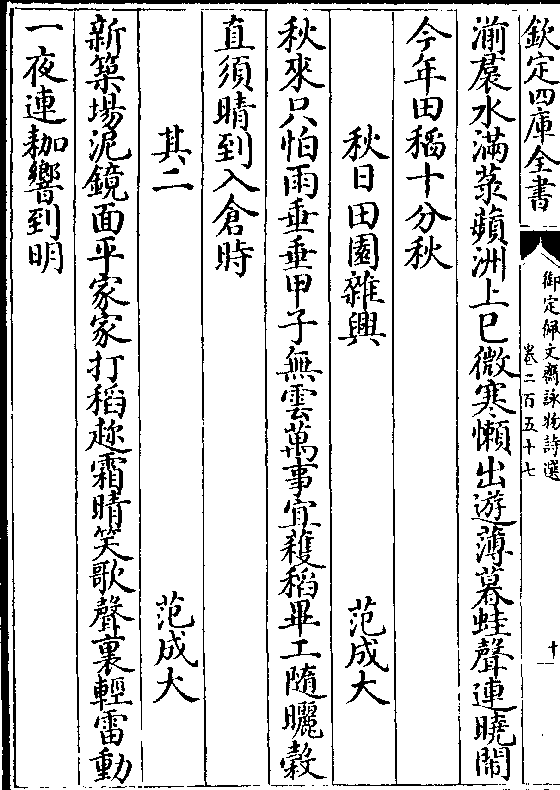 欽定四庫全書
御定佩文齋詠物詩選
卷二百五十七
十
湔裠水滿菉蘋洲上巳微寒懶出遊薄暮蛙聲連曉鬧
今年田稻十分秋
秋日田園雜興
范成大
秋來只怕雨垂垂甲子無雲萬事宜穫稻畢工隨曬穀
直須晴到入倉時
其二
范成大
新築場泥鏡面平家家打稻趂霜晴笑歌聲裏輕雷動
一夜連耞響到明